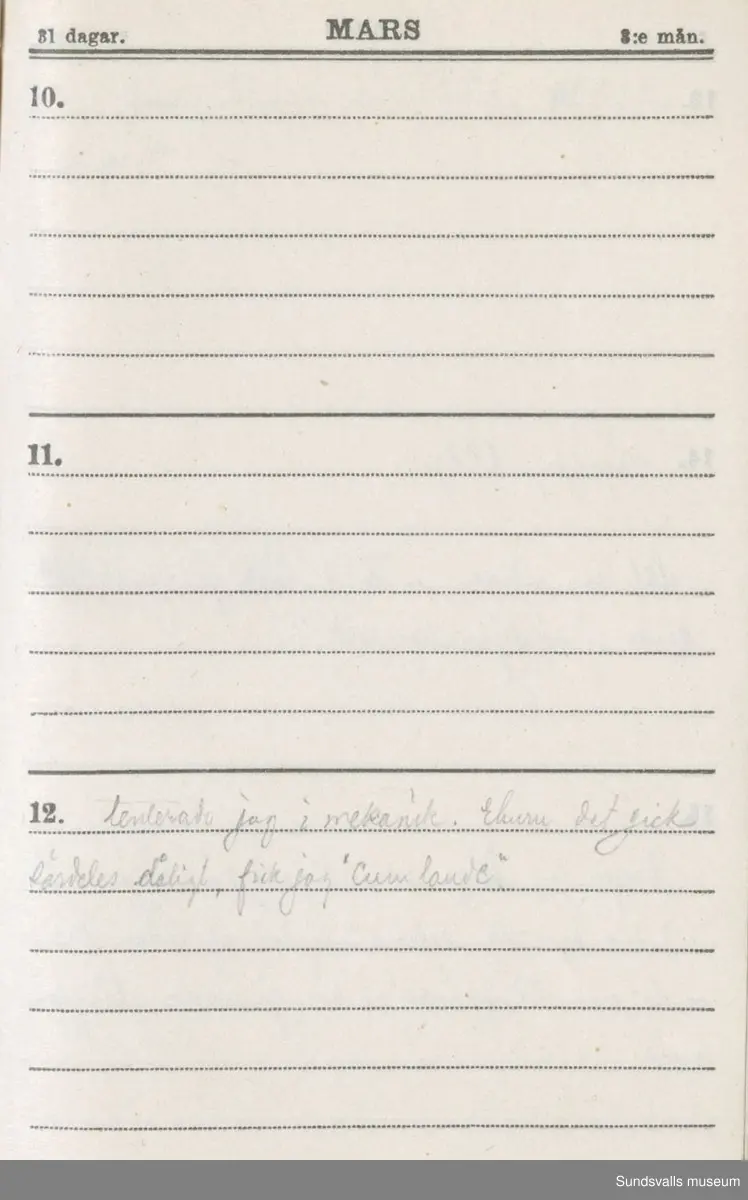 31 dagar. MARS 3:e mån.
10.
11.
12. tenterade jag i mekanik. Ehuru det gick
särdeles dåligt, fick jag "Cum laude".
Sundsvalls museum